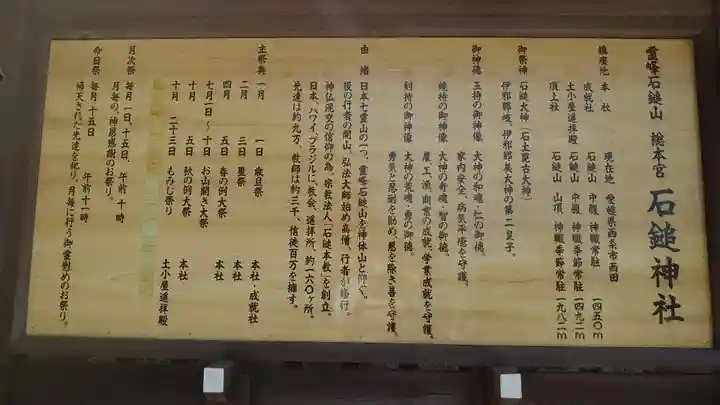 霊峰石鎚山 総本宮 石鎚神社
鎮座地 本社 現在地 愛媛県西条市西田
成就社 石鎚山 中腹 神職常駐 一四五〇m
土小屋遥拝殿 石鎚山 中腹 神職季節常駐 一四九二m
頂上社 石鎚山 山頂 神職季節常駐 一九八二m
御祭神 石鎚大神(石土毘古大神)
伊邪那岐、伊邪那美大神の第二皇子。
御神徳 玉持の御神像 大神の和魂・仁の御徳。
家内安全、病気平癒を守護。
鏡持の御神像 大神の奇魂・智の御徳。
農、工、漁、商業の成就、学業成就を守護。
剣持の御神像 大神の荒魂・勇の御徳。
勇気と忍耐を勧め、悪を除き善を守護。
由緒 日本七霊山の一つ、霊峰石鎚山を神体山と仰ぐ。
役の行者の開山、弘法大師始め高僧、行者が修行。
神仏混交の信仰の為、宗教法人「石鎚本教」を創立。
日本、ハワイ、ブラジルに、教会、遥拝所、約一六〇ヶ所。
先達は約九万、教師は約三千、信徒百万を擁す。
主祭典 一月 一日 歳旦祭 本社・成就社
二月 三日 星祭 本社
四月 五日 春の例大祭 本社
七月一日~十日 お山開き大祭
十月 五日 秋の例大祭 本社
十月 二十三日 もみじ祭り 土小屋遥拝殿
月次祭 毎月 一日、十五日、午前 十時
月毎の、神恩感謝のお祭り。
今日祭 毎月 十五日 午前十一時
帰天された先達を祀り、月毎に行う御霊慰めのお祭り。